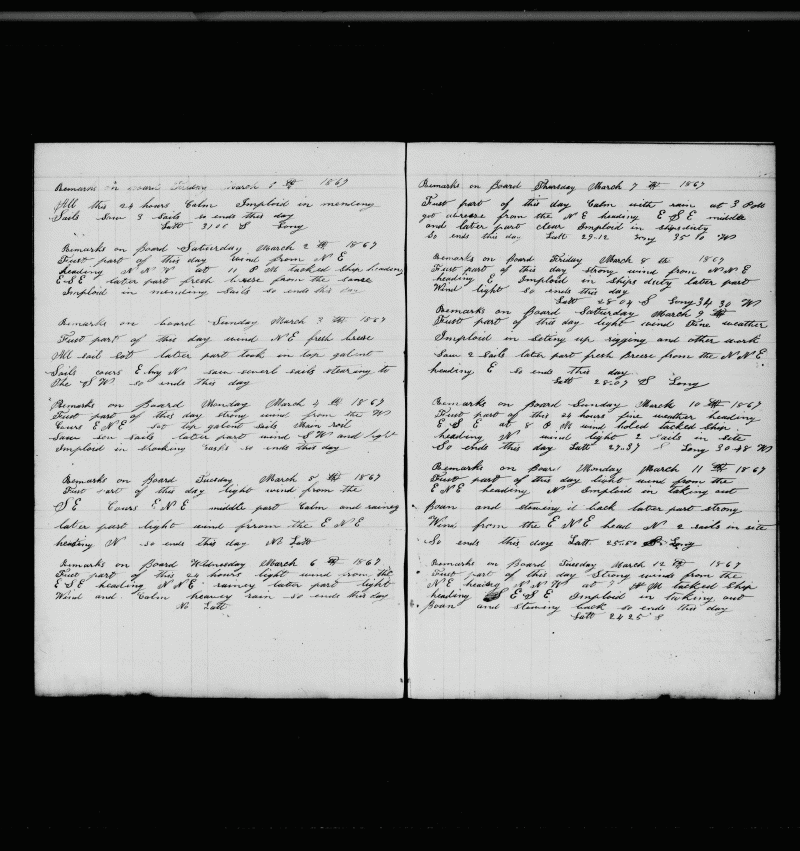 Remarks on board Friday March 1 th 1867
All this 24 hours Calm Imploid in mending
Sails Saw 3 Sails so ends this day
Latt 31 00 S Long
Remarks on Board Saturday March 2 th 1867
First part of this day wind from N E
heading N N W at 11 P M tacked Ship heading
E S E later part fresh brese from the same
Imploid in mending Sails so ends this day
Remarks on board Sunday March 3 th 1867
First part of this day wind N E fresh brese
All sail later part took in top galent
Sails cours E by N saw severl sails stearing to
The S W so ends this day
Remarks on Board Monday March 4 th 1867
First part of this day strong wind from the W
Cours E N E set top galent sails Main roil
Saw sails later part wind S W and light
Imploid in so ends this day
Remarks on Board Tuesday March 5 th 1867
First part of this day light wind from the
S E Cours E N E middle part Calm and rainey
later part light wind from the E N E
heading N so ends this day No Latt
Remarks on Board Wednesday March 6 th 1867
First part of this 24 hours light wind from the
E S E heading N N E rainey later part light
Wind and Calm heavey rain so ends this day
No Latt
Remarks on Board Thursday March 7 th 1867
First part of this day Calm with rain at 3 P M
got abrease from the N E heading E S E middle
and later part clear Imploid in ships duty
So ends this day Latt 29-12 Long 35 10 W
Remarks on Board Friday March 8 th 1867
First part of this day strong wind from N N E
heading E Imploid in Ships duty later part
Wind light so ends this day
Latt 28 04 S Long 34 30 W
Remarks on Board Saturday March 9 th
First part of this day light wind Fine weather
Imploid in seting up rigging and other work
Saw 2 Sails later part fresh Breese from the N N E
heading E so ends this day
Latt 28.07 S Long
Remarks on Board Sunday March 10 th 1867
First part of this 24 hours fine weather heading
E S E at 8 P M wind holed tacked Ship
heading N wind light 2 Sails in site
So ends this day Latt 27.37 S Long 30-48 W
Remarks on Board Monday March 11 th 1867
First part of this day light wind from the
E N E heading N Imploid in taking out
Boan and stowing it back later part strong
Wind from the E N E head N 2 sails in site
So ends this day Latt 25.50 S Long
Remarks on Board Tuesday March 12 th 1867
First part of this day Strong winds from the
N E heading N N W at 7 A M tacked Ship
heading S E S E Imploid in taking out
Boan and stowing back so ends this day
Latt 24 25 S